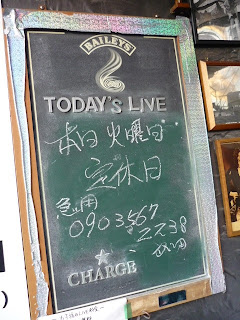 BAILEYS
TODAY'S LIVE
本日 火曜日
定休日
急用
0903567
2238
CHARGE